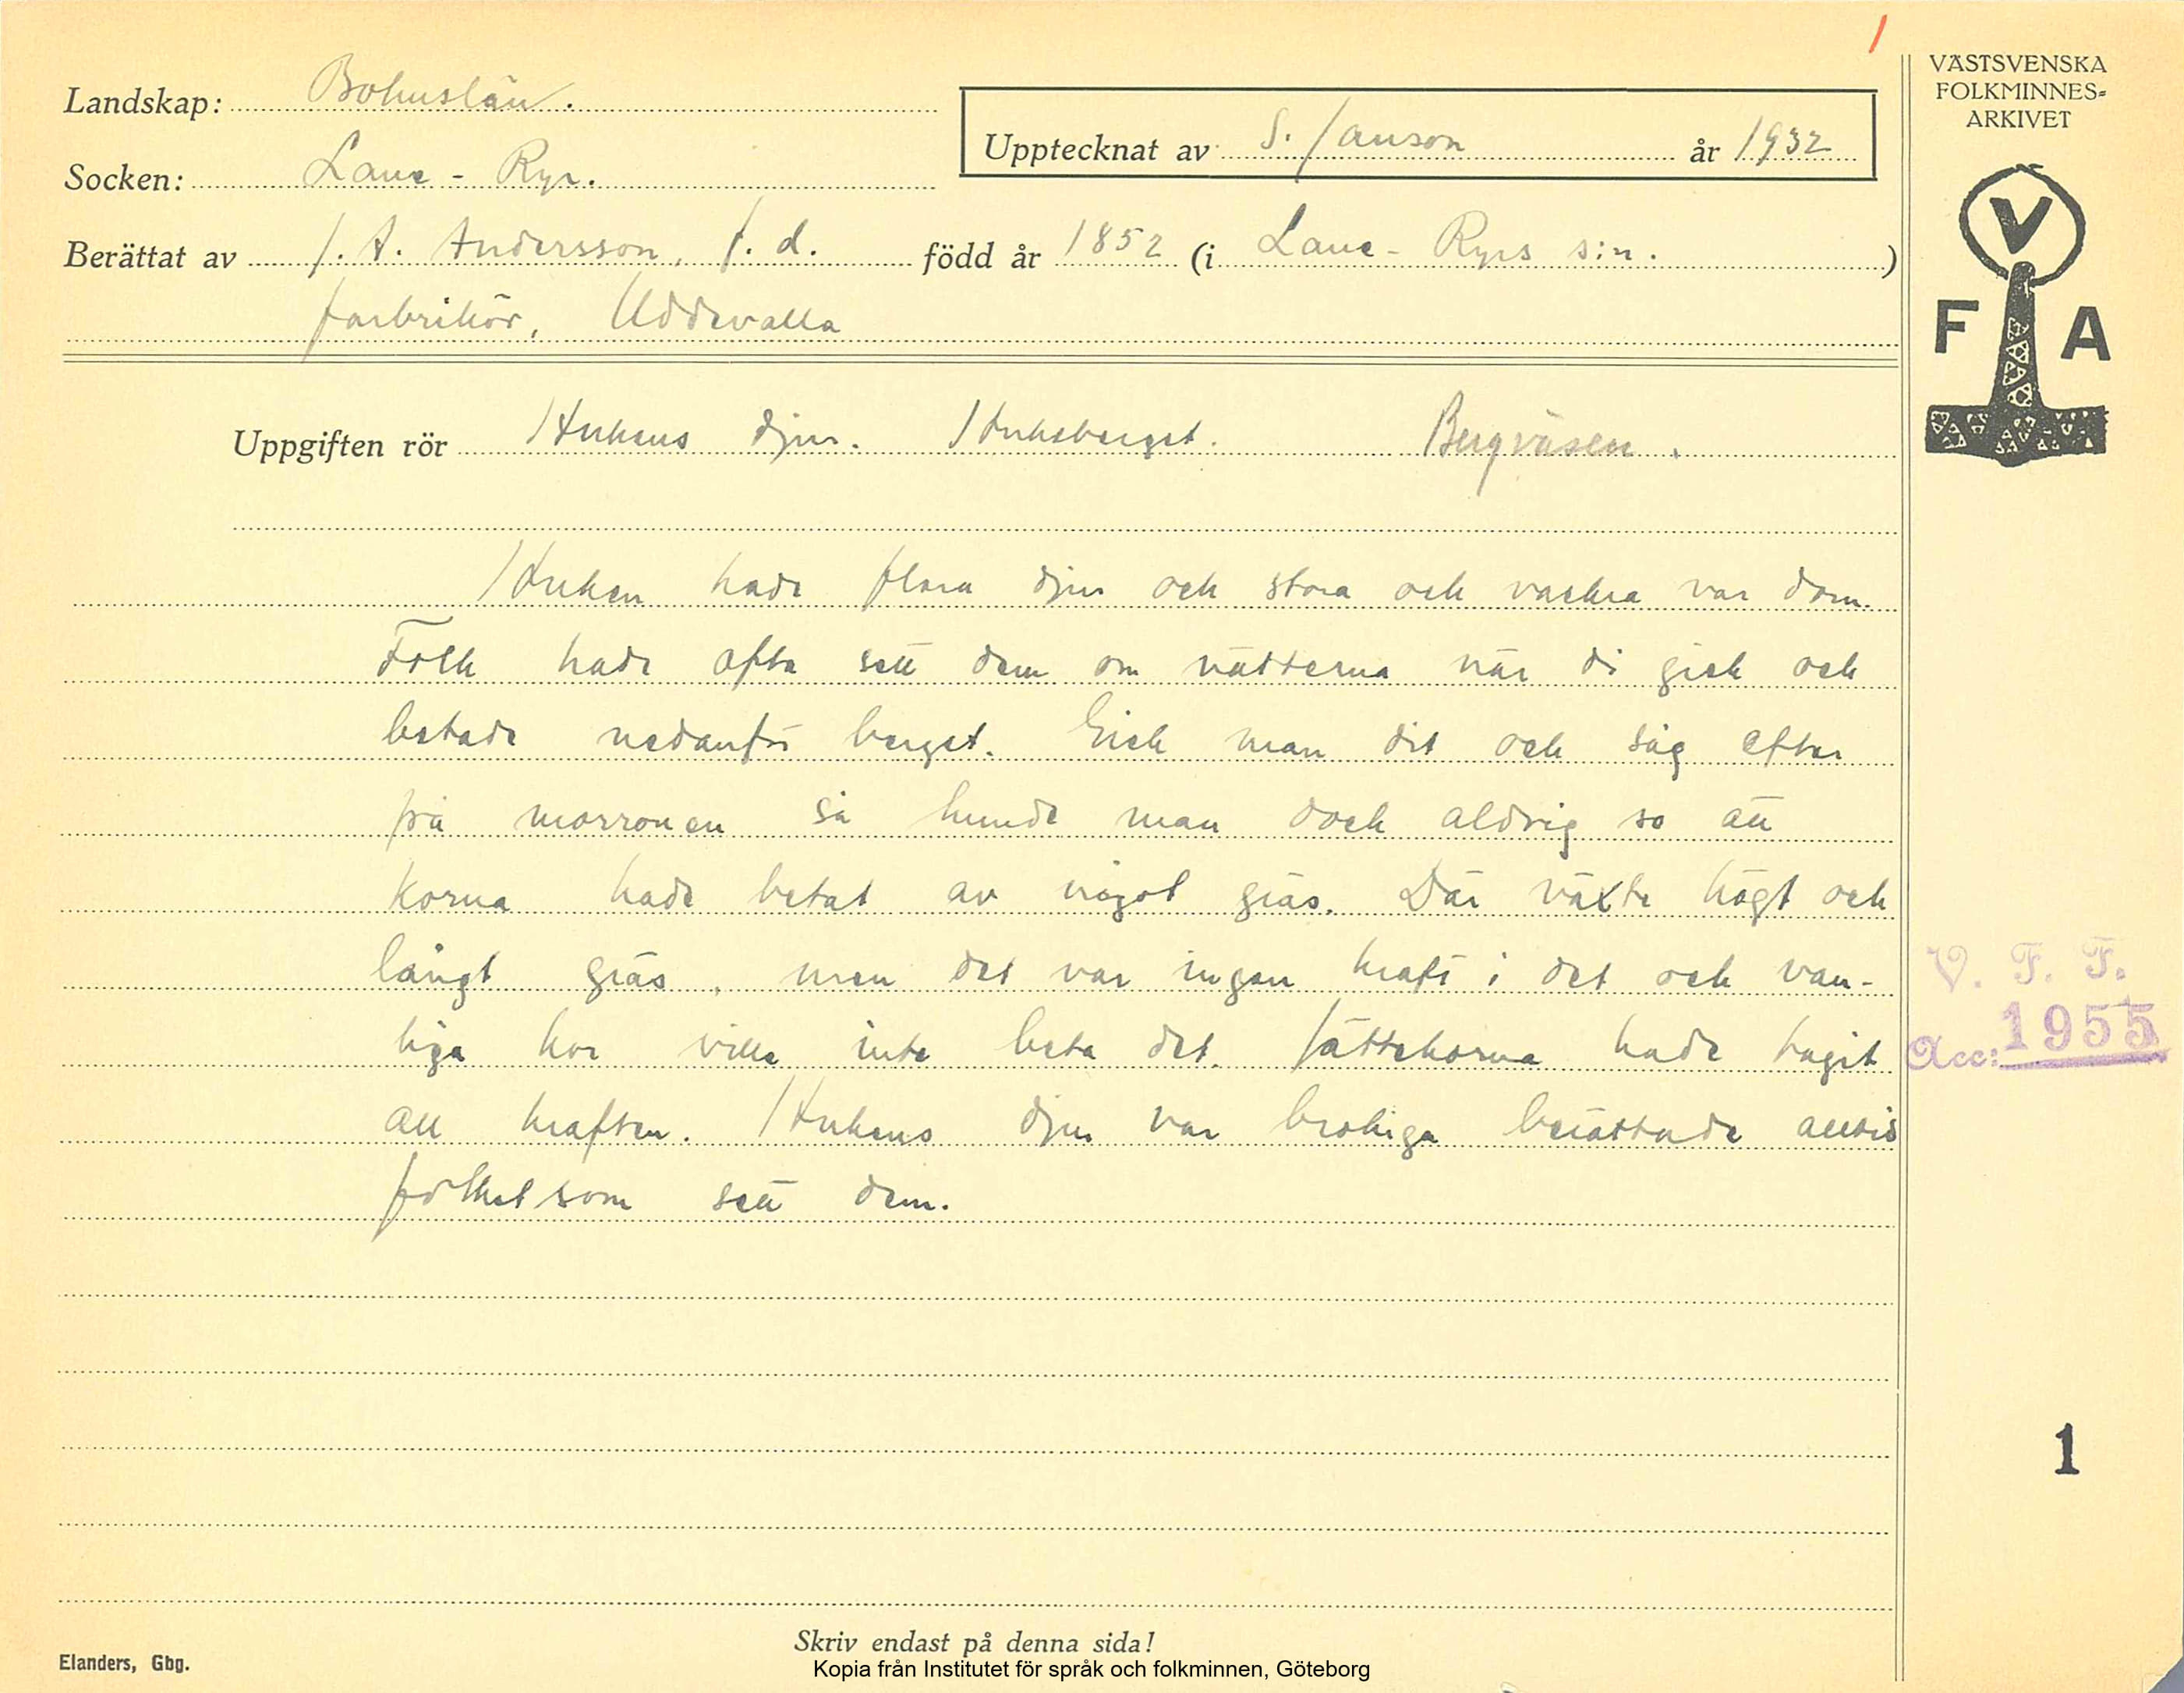 1
VÄSTSVENSKA
FOLKMINNES-
ARKIVET
V
F A
Landskap: Bohuslän.
Socken: Lane-Ryr.
Upptecknat av S. Janson år 1932
Berättat av J. A. Andersson, f. d. född år 1852 (i Lane-Ryrs s:n.)
farbrikör, Uddevalla
Uppgiften rör djur. Bergväsen.
hade flera djur och stora och vackra var dom.
Folk hade ofta sett dem om nätterna när di gick och
betade nedanför berget. Gick man dit och såg efter
på morronen så kunde man dock aldrig se att
korna hade betat av något gräs. Där växte högt och
långt gräs, men det var ingen kraft i det och van-
liga kor ville inte beta det. Jättekorna hade tagit
all kraften. djur var brokiga berättade alltis
folket som sett dem.
V. F. F.
Acc: 1955
1
Skriv endast på denna sida!
Elanders, Gbg.
Kopia från Institutet för språk och folkminnen, Göteborg